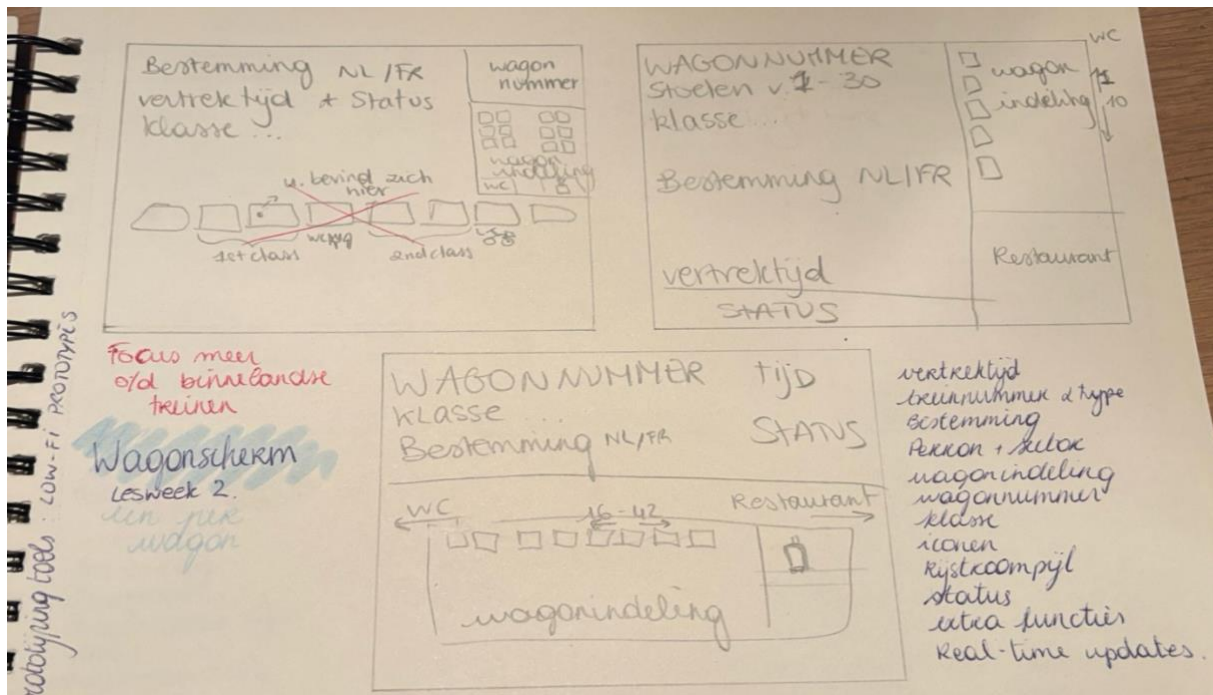 Bestemming NL/FR
vertrektijd + Status
klasse ...
wagon
nummer
wagon
indeling
WC
u bevind zich
hier
1st class
2nd class
WAGONNUMMER
Stoelen v. 1 - 30
klasse ...
Bestemming NL/FR
vertrektijd
STATUS
WC
wagon
indeling
11
10
Restaurant
Focus meer
o/d binnelandse
treinen
Wagonscherm
Lesweek 2.
een per
wagon
prototyping tools : LOW-FI PROTOTYPIS
WAGONNUMMER
KLASSE ...
Bestemming NL/FR
TIJD
STATUS
WC
16 - 42
Restaurant
wagonindeling
vertrektijd
treinnummer & type
Bestemming
Perron +
wagonindeling
wagonnummer
klasse
iconen
Rijstroompijl
status
extra functies
Real-time updates.